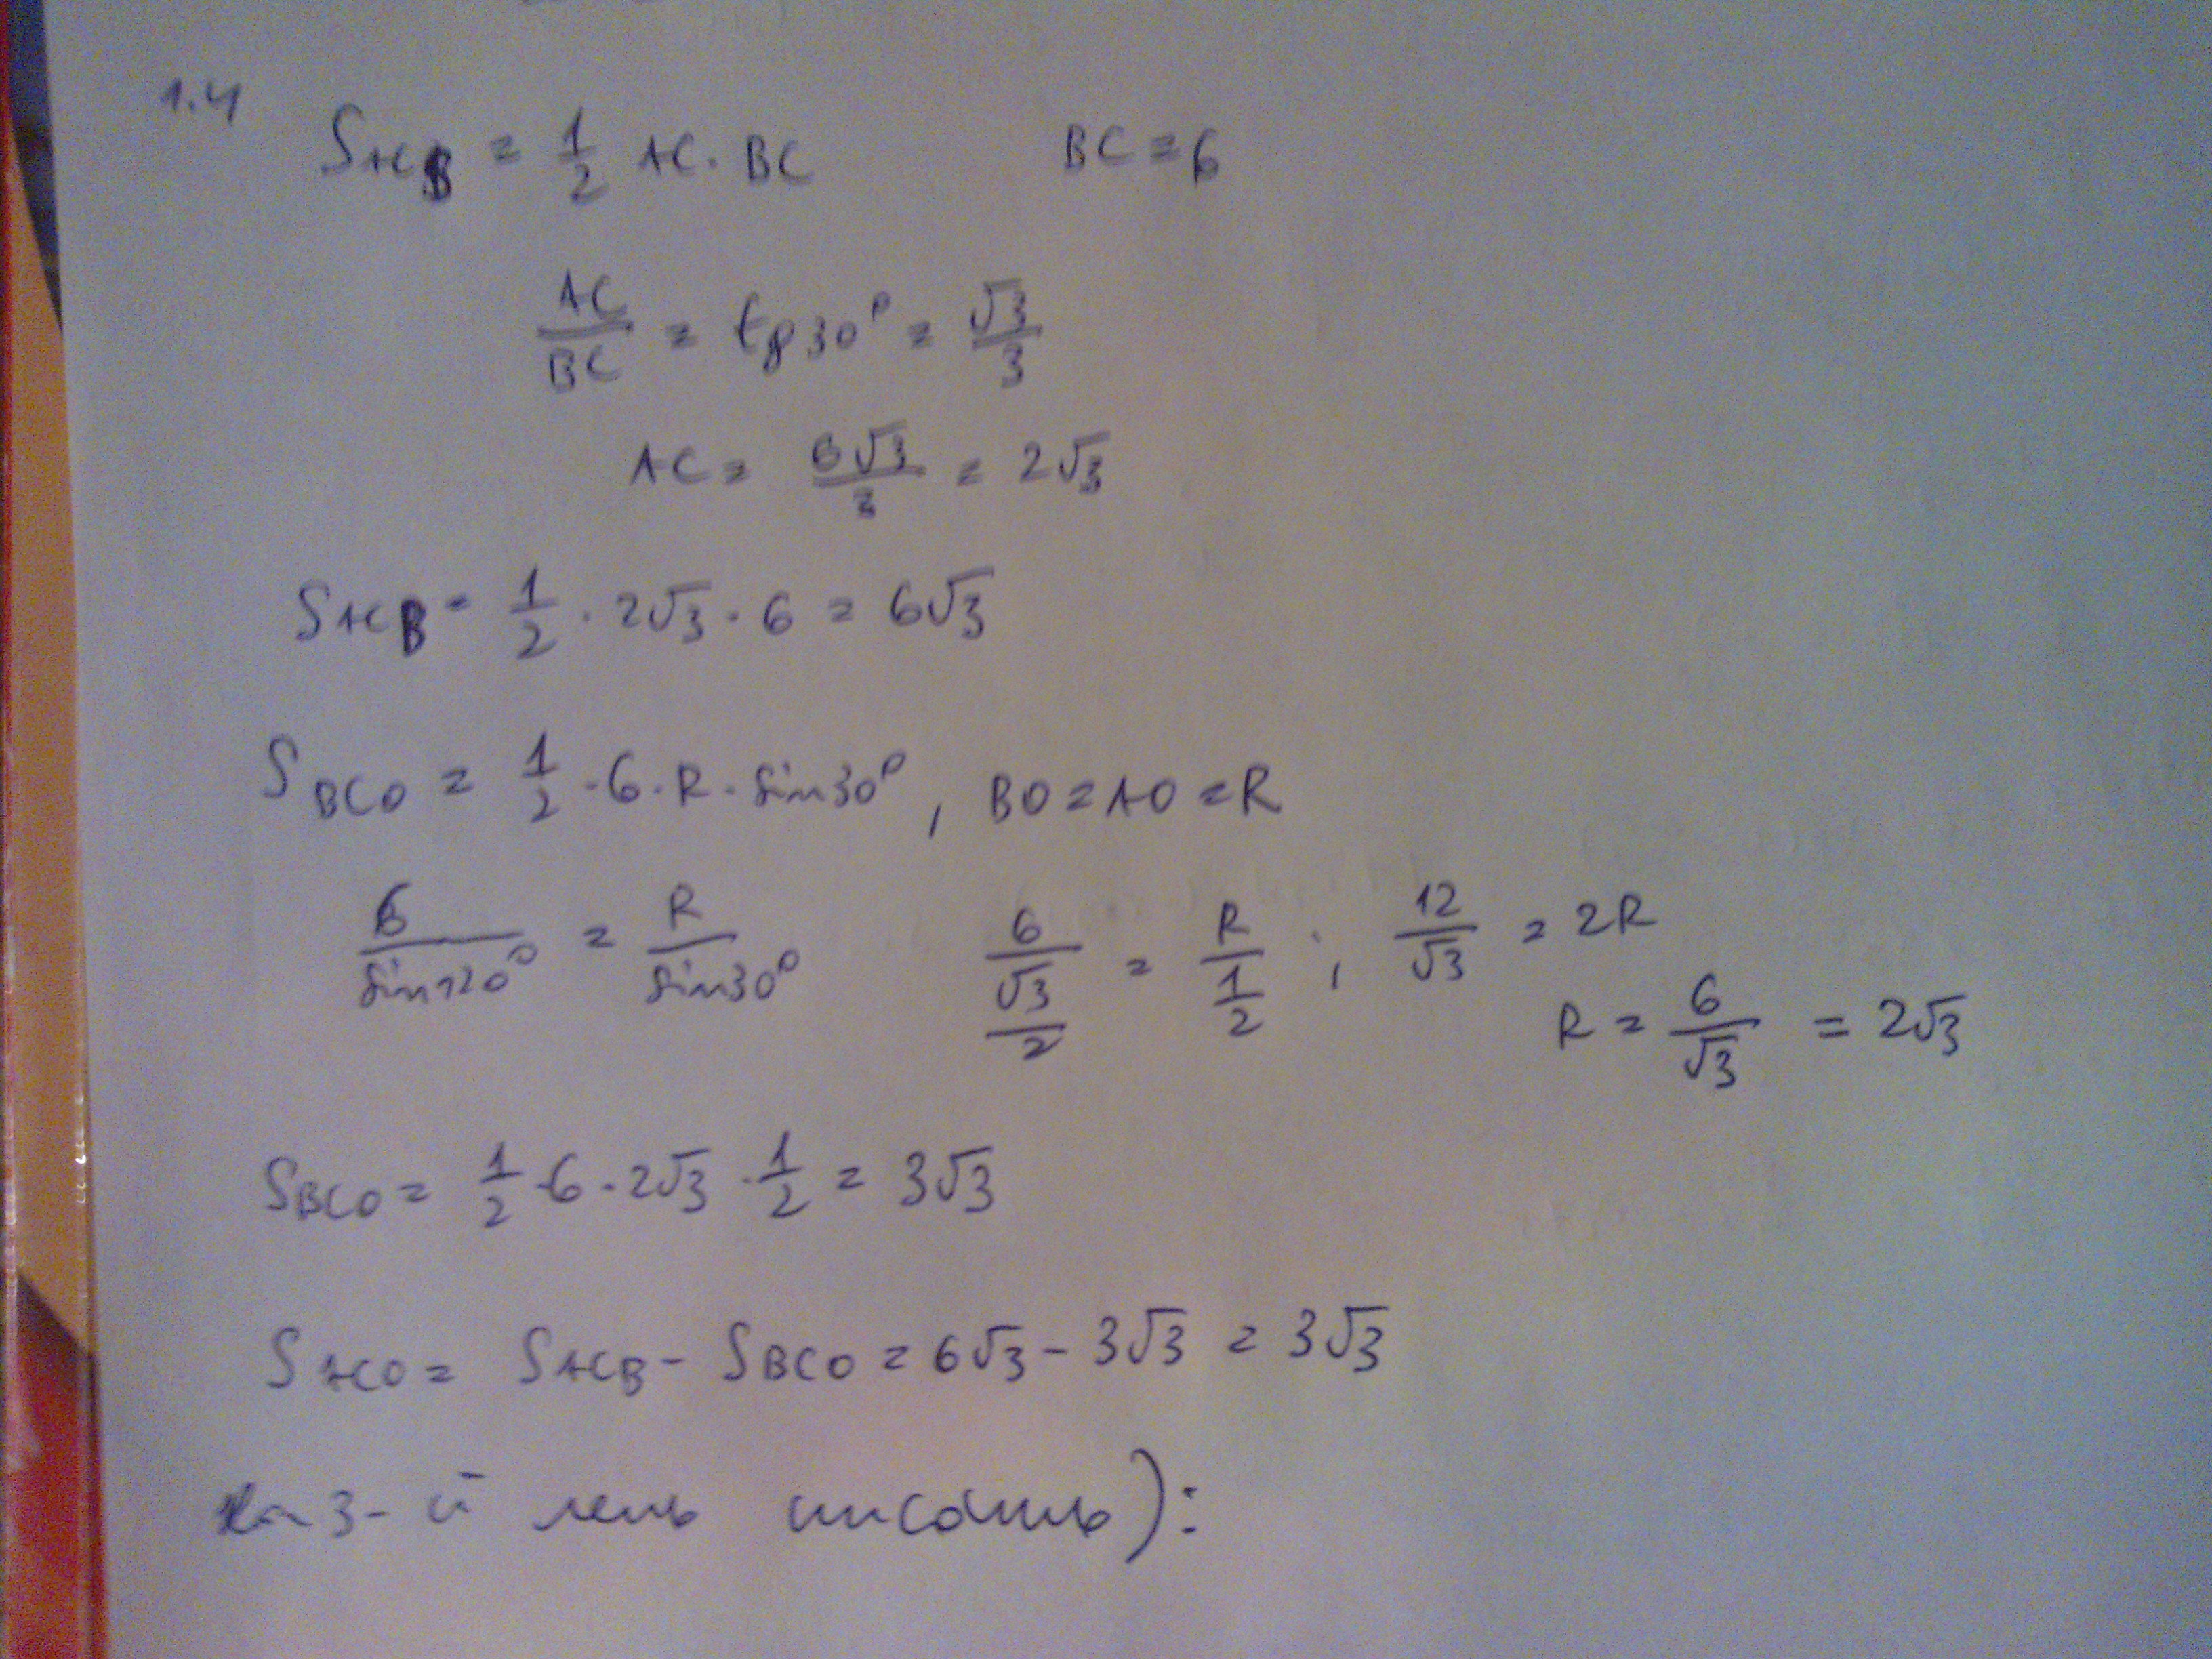 1.4
S_ACB = 1/2 AC · BC     BC = 6
AC/BC = tg 30° = √3/3
AC = 6√3/3 = 2√3
S_ACB = 1/2 · 2√3 · 6 = 6√3
S_BCO = 1/2 · 6 · R · sin 30°, BO = AO = R
6/sin 120° = R/sin 30°     6/(√3/2) = R/(1/2) ; 12/√3 = 2R
R = 6/√3 = 2√3
S_BCO = 1/2 · 6 · 2√3 · 1/2 = 3√3
S_ACO = S_ACB - S_BCO = 6√3 - 3√3 = 3√3
3-й лень писать ):